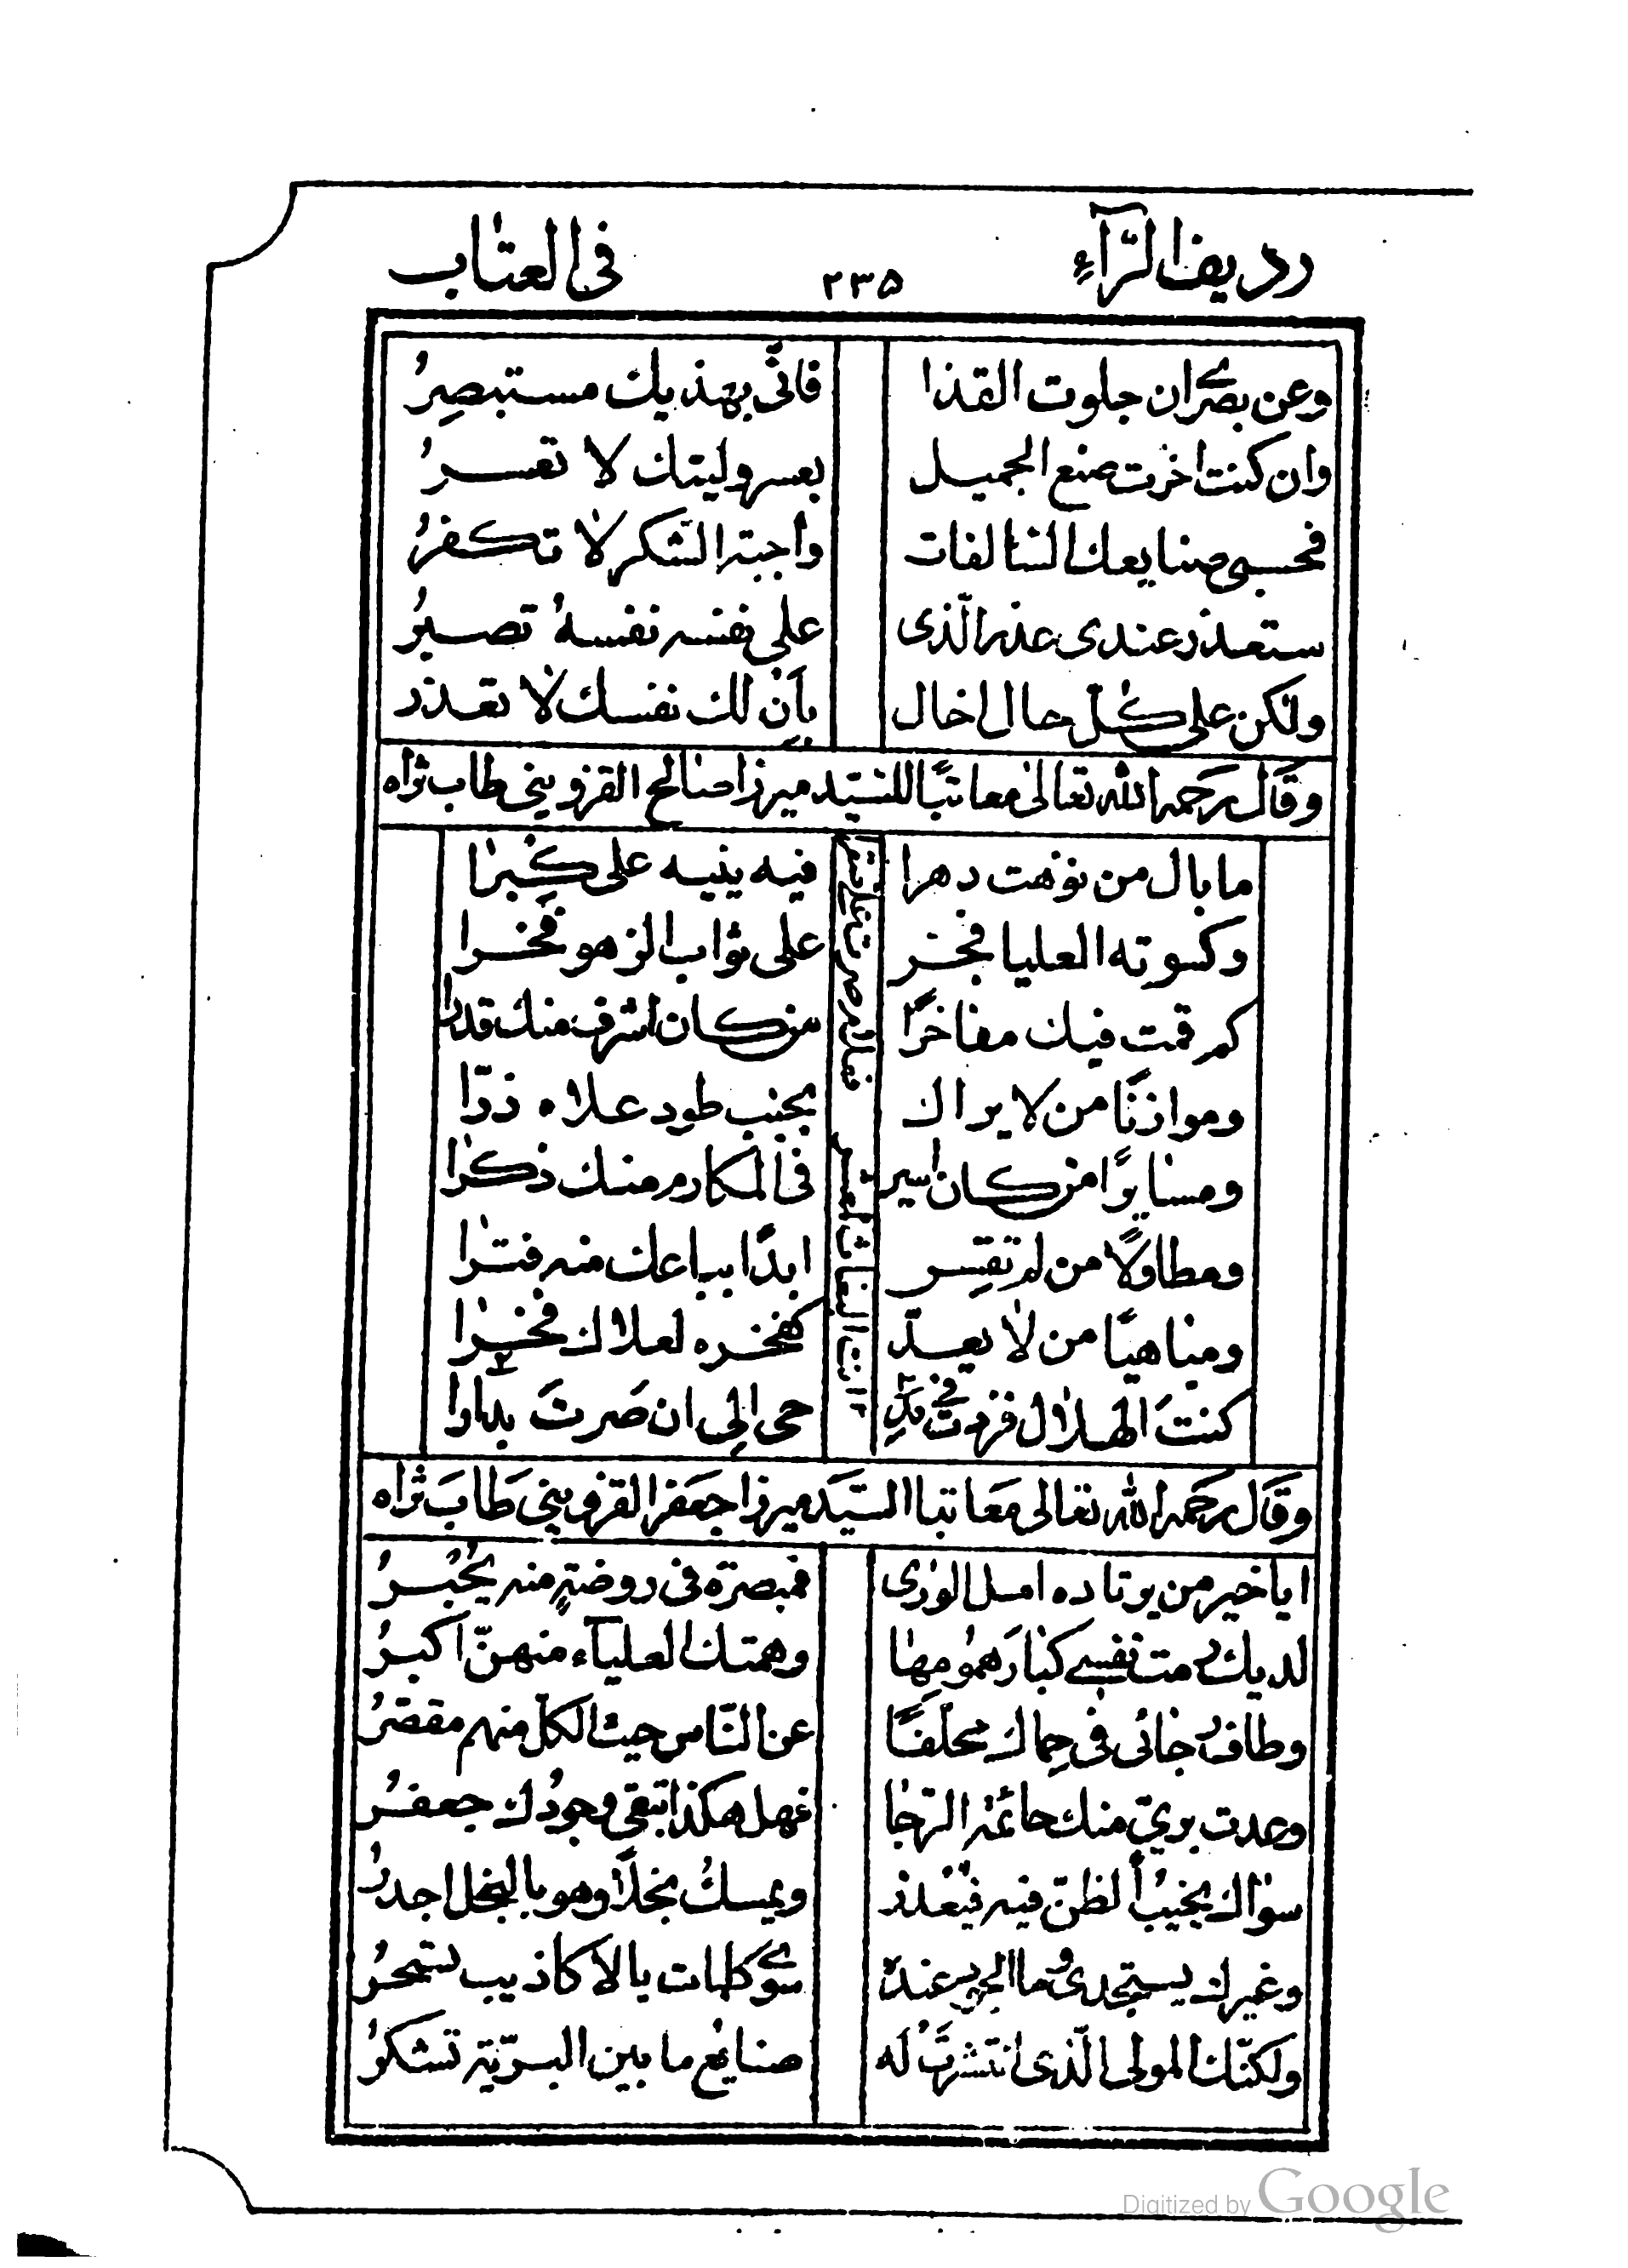 رديف الرّآء ٢٣٥ فى العتاب
وعن بصرى ان جلوت القذا فانّى بهذيك مستبصرُ
وان كنت اخرت صنع الجميل بعسر وليتك لا تعسرُ
فحسبى صنايعك السّالفات واجبة الشكر لا تكفرُ
ستعذر عندى عذر الّذى على نفسه نفسهُ تصبرُ
ولكن على كلّ حال اخال بأن لك نفسك لا تعذر
وقال رحمه الله تعالى معاتبًا للسّيّد ميرزا صالح القزوينى طاب ثراه
ما بال من نوّهت دهرا فيه يتيه على كبرا
وكسوته العليا فجر على ثواب الزهو فخرا
كم قمت فيك مفاخرًا من كان اشرف منك قدرا
وموازنًا من لا يراك بجنب طود علاه ذرّا
ومسايرًا من كان اسير فى المكارم منك ذكرا
ومطاولًا من لم تقس ابدًا بباعك منه فترا
ومباهيًا من لا يعدّ كفخره لعلاك فخرا
كنتَ الهلال فزدت فى حى الى ان صرتَ بدرا
وقال رحمه الله تعالى معاتبا السّيّد ميرزا جعفر القزوينى طابَ ثراه
ايا خير من يرتاده امل الورى فمبصره فى روضةٍ منه يُحبرُ
لديك رمت نفسى كبارَ همومها وهمتك العلياء منهنّ اكبرُ
وطاف رجائى فى حماك محلّفًا عن النّاس حيث الكلّ منهم مقصّرُ
وعدت بريّ منك حائمة الرّجا فهل هكذا تبقى وجودُك جعفرُ
سواك يخيبُ الظنّ فيه فيعذر ويمسكُ بخلًا وهو بالبخل اجدرُ
وغيرك يستجدى وما الجود عنده سوى كلمات بالاكاذيب تسحرُ
ولكنّك المولى الّذى انتشرتْ له صنايعُ ما بين البريّة تشكرُ